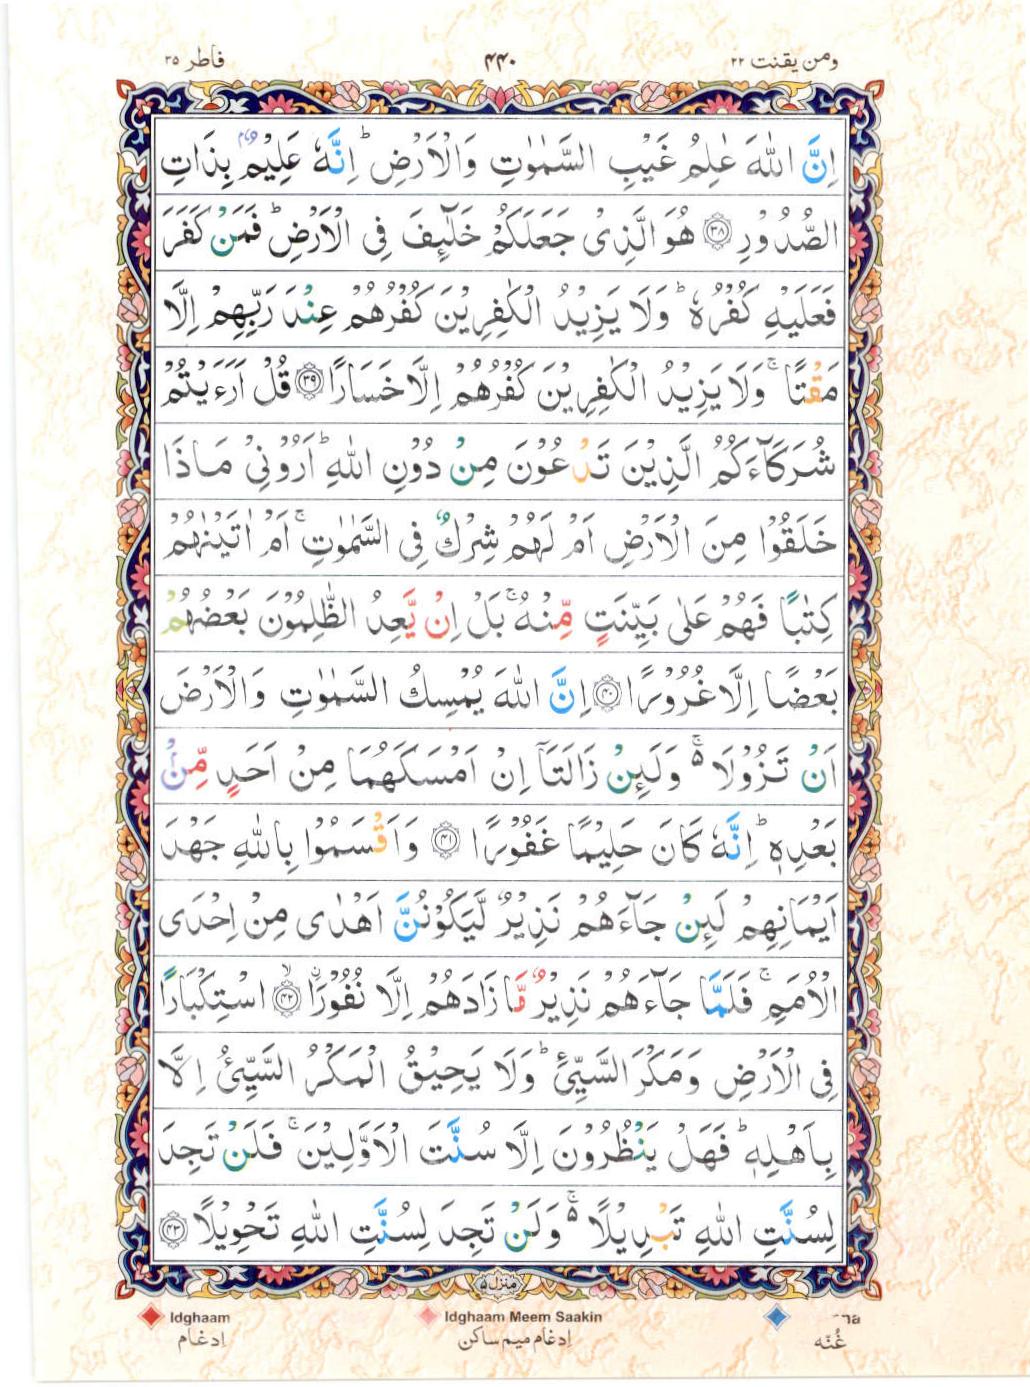 ومن يقنت ۲۲
۴۴۰
فاطر ۳۵
اِنَّ اللّٰهَ عٰلِمُ غَيْبِ السَّمٰوٰتِ وَالْاَرْضِ ؕ اِنَّهٗ عَلِيْمٌۢ بِذَاتِ
الصُّدُوْرِ ﴿۳۸﴾ هُوَ الَّذِىْ جَعَلَكُمْ خَلٰٓئِفَ فِى الْاَرْضِ ؕ فَمَنْ كَفَرَ
فَعَلَيْهِ كُفْرُهٗ ؕ وَلَا يَزِيْدُ الْكٰفِرِيْنَ كُفْرُهُمْ عِنْدَ رَبِّهِمْ اِلَّا
مَقْتًا ۚ وَلَا يَزِيْدُ الْكٰفِرِيْنَ كُفْرُهُمْ اِلَّا خَسَارًا ﴿۳۹﴾ قُلْ اَرَءَيْتُمْ
شُرَكَآءَكُمُ الَّذِيْنَ تَدْعُوْنَ مِنْ دُوْنِ اللّٰهِ ؕ اَرُوْنِىْ مَاذَا
خَلَقُوْا مِنَ الْاَرْضِ اَمْ لَهُمْ شِرْكٌ فِى السَّمٰوٰتِ ۚ اَمْ اٰتَيْنٰهُمْ
كِتٰبًا فَهُمْ عَلٰى بَيِّنَتٍ مِّنْهُ ۚ بَلْ اِنْ يَّعِدُ الظّٰلِمُوْنَ بَعْضُهُمْ
بَعْضًا اِلَّا غُرُوْرًا ﴿۴۰﴾ اِنَّ اللّٰهَ يُمْسِكُ السَّمٰوٰتِ وَالْاَرْضَ
اَنْ تَزُوْلَا ۵ۚ وَلَئِنْ زَالَتَاۤ اِنْ اَمْسَكَهُمَا مِنْ اَحَدٍ مِّنْۢ
بَعْدِهٖ ؕ اِنَّهٗ كَانَ حَلِيْمًا غَفُوْرًا ﴿۴۱﴾ وَاَقْسَمُوْا بِاللّٰهِ جَهْدَ
اَيْمَانِهِمْ لَئِنْ جَآءَهُمْ نَذِيْرٌ لَّيَكُوْنُنَّ اَهْدٰى مِنْ اِحْدَى
الْاُمَمِ ۚ فَلَمَّا جَآءَهُمْ نَذِيْرٌ مَّا زَادَهُمْ اِلَّا نُفُوْرًا ۙ﴿۴۲﴾ اسْتِكْبَارًا
فِى الْاَرْضِ وَمَكْرَ السَّيِّئِ ؕ وَلَا يَحِيْقُ الْمَكْرُ السَّيِّئُ اِلَّا
بِاَهْلِهٖ ؕ فَهَلْ يَنْظُرُوْنَ اِلَّا سُنَّتَ الْاَوَّلِيْنَ ۚ فَلَنْ تَجِدَ
لِسُنَّتِ اللّٰهِ تَبْدِيْلًا ۵ۚ وَلَنْ تَجِدَ لِسُنَّتِ اللّٰهِ تَحْوِيْلًا ﴿۴۳﴾
منزل ۵
Idghaam
Idghaam Meem Saakin
اِدغام
اِدغام میم ساکن
غُنّه